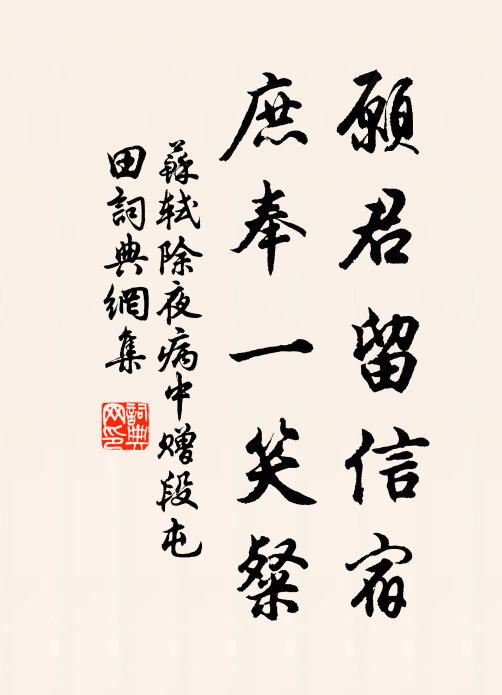 願君留信宿
庶奉一笑粲
蘇軾除夜病中贈段屯
田詞典網集
詞典
网印